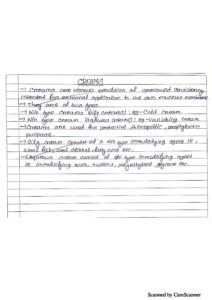 CREAMS
→ Creams are viscous emulsion of semisolid consistency
intended for external application to the skin mucous membrane
→ They are of two types.
→ W/o type creams (oily creams): eg - Cold cream.
→ O/w type cream (aqueous creams): eg - Vanishing cream.
→ Creams are used for protective, therapeutic, prophylactic
purpose.
→ Oily cream consist of a w/o type emulsifying agent ie,
wool fat, wool alcohol, fatty acid etc.
→ Aqueous cream consist of o/w type emulsifying agent
ie emulsifying wax, tweens, polyethylene glycone etc.
Scanned by CamScanner